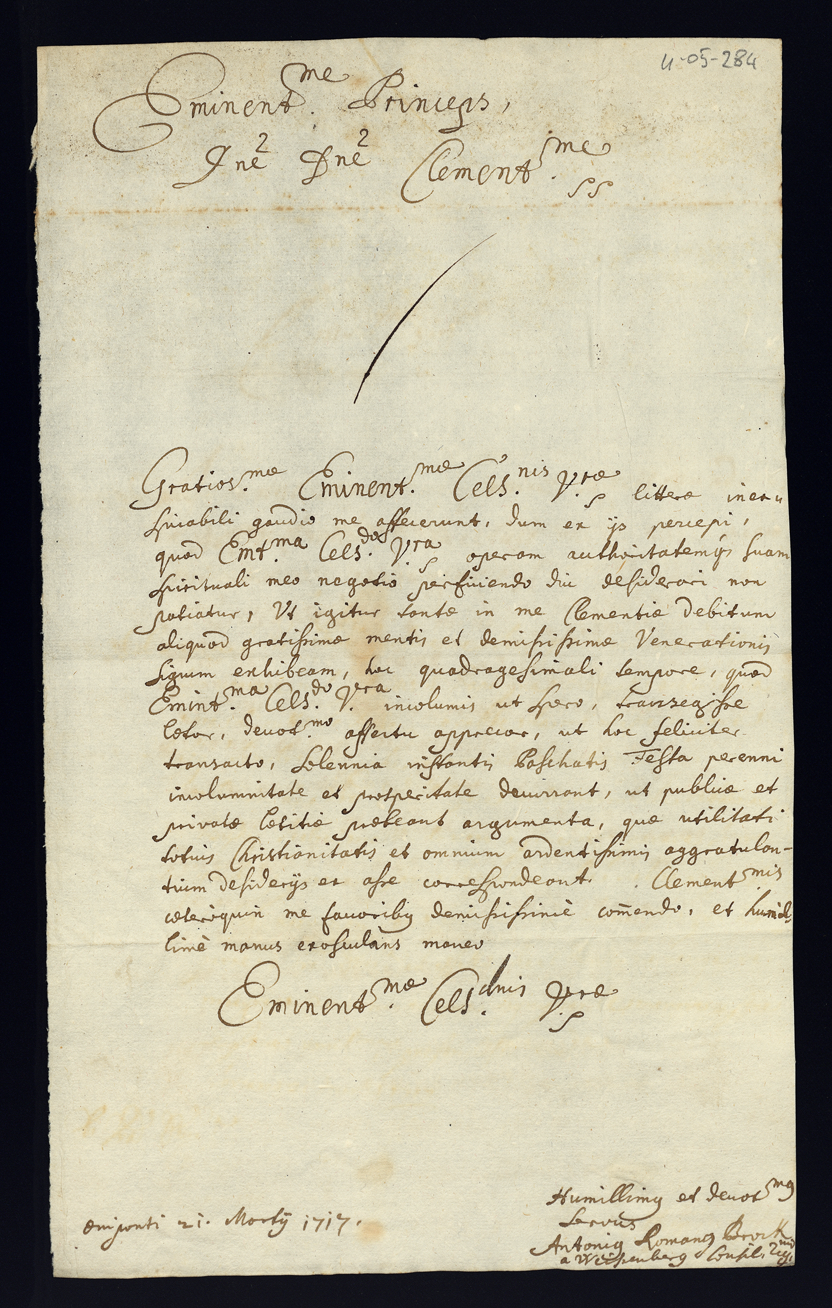 4-05-284
Eminent.me Princeps,
Dne Dne Clement.me
Gratios.mæ Eminent.mæ Cels.nis V.ræ litteræ inexu
spicabili gaudio me affecerunt, dum ex ijs percepi,
quod Emt.ma Cels.do V.ra operam authoritatemq3 suam
spirituali meo negotio perficiendo diu desiderari non
patiatur, Ut igitur tantæ in me Clementiæ debitum
aliquod gratissimæ mentis et demississimæ Venerationis
signum exhibeam, hoc quadragesimali tempore, quod
Emint.ma Cels.do V.ra incolumis ut spero, transegisse
lætor, devot.mo affectu apprecor, ut hoc feliciter
transacto, solennia instantis Paschatis Festa perenni
incolumnitate et prosperitate decurrant, ut publicæ et
privatæ lætitiæ præbeant argumenta, quæ utilitati
totius Christianitatis et omnium ardentissimis aggratulan-
tium desiderijs ex asse correspondeant. Clement.mis
cæteròquin me favoribus demississimè com̄endo, et humil-
limè manus exosculans maneo
Eminent.mæ Cels.dnis V.ræ
Œniponti 21. Martij 1717.
Humillimus et devot.mus
Servus
Antonius Romanus Brock
a Weissenberg Consil.